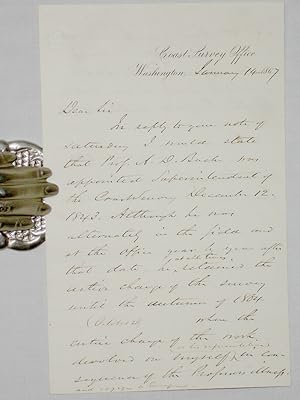 Coast Survey Office
Washington, January 14 1867
Dear Sir
In reply to your note of
Saturday I would state
that Prof. A. D. Bache was
appointed Superintendent of
the Coast Survey December 12.
1843. Although he was
alternately in the field and
at the office year by year after
that date he retained the
active charge of the survey
until the autumn of 1864
when the
entire charge of the work
devolved on myself, in con-
sequence of the Professor's illness